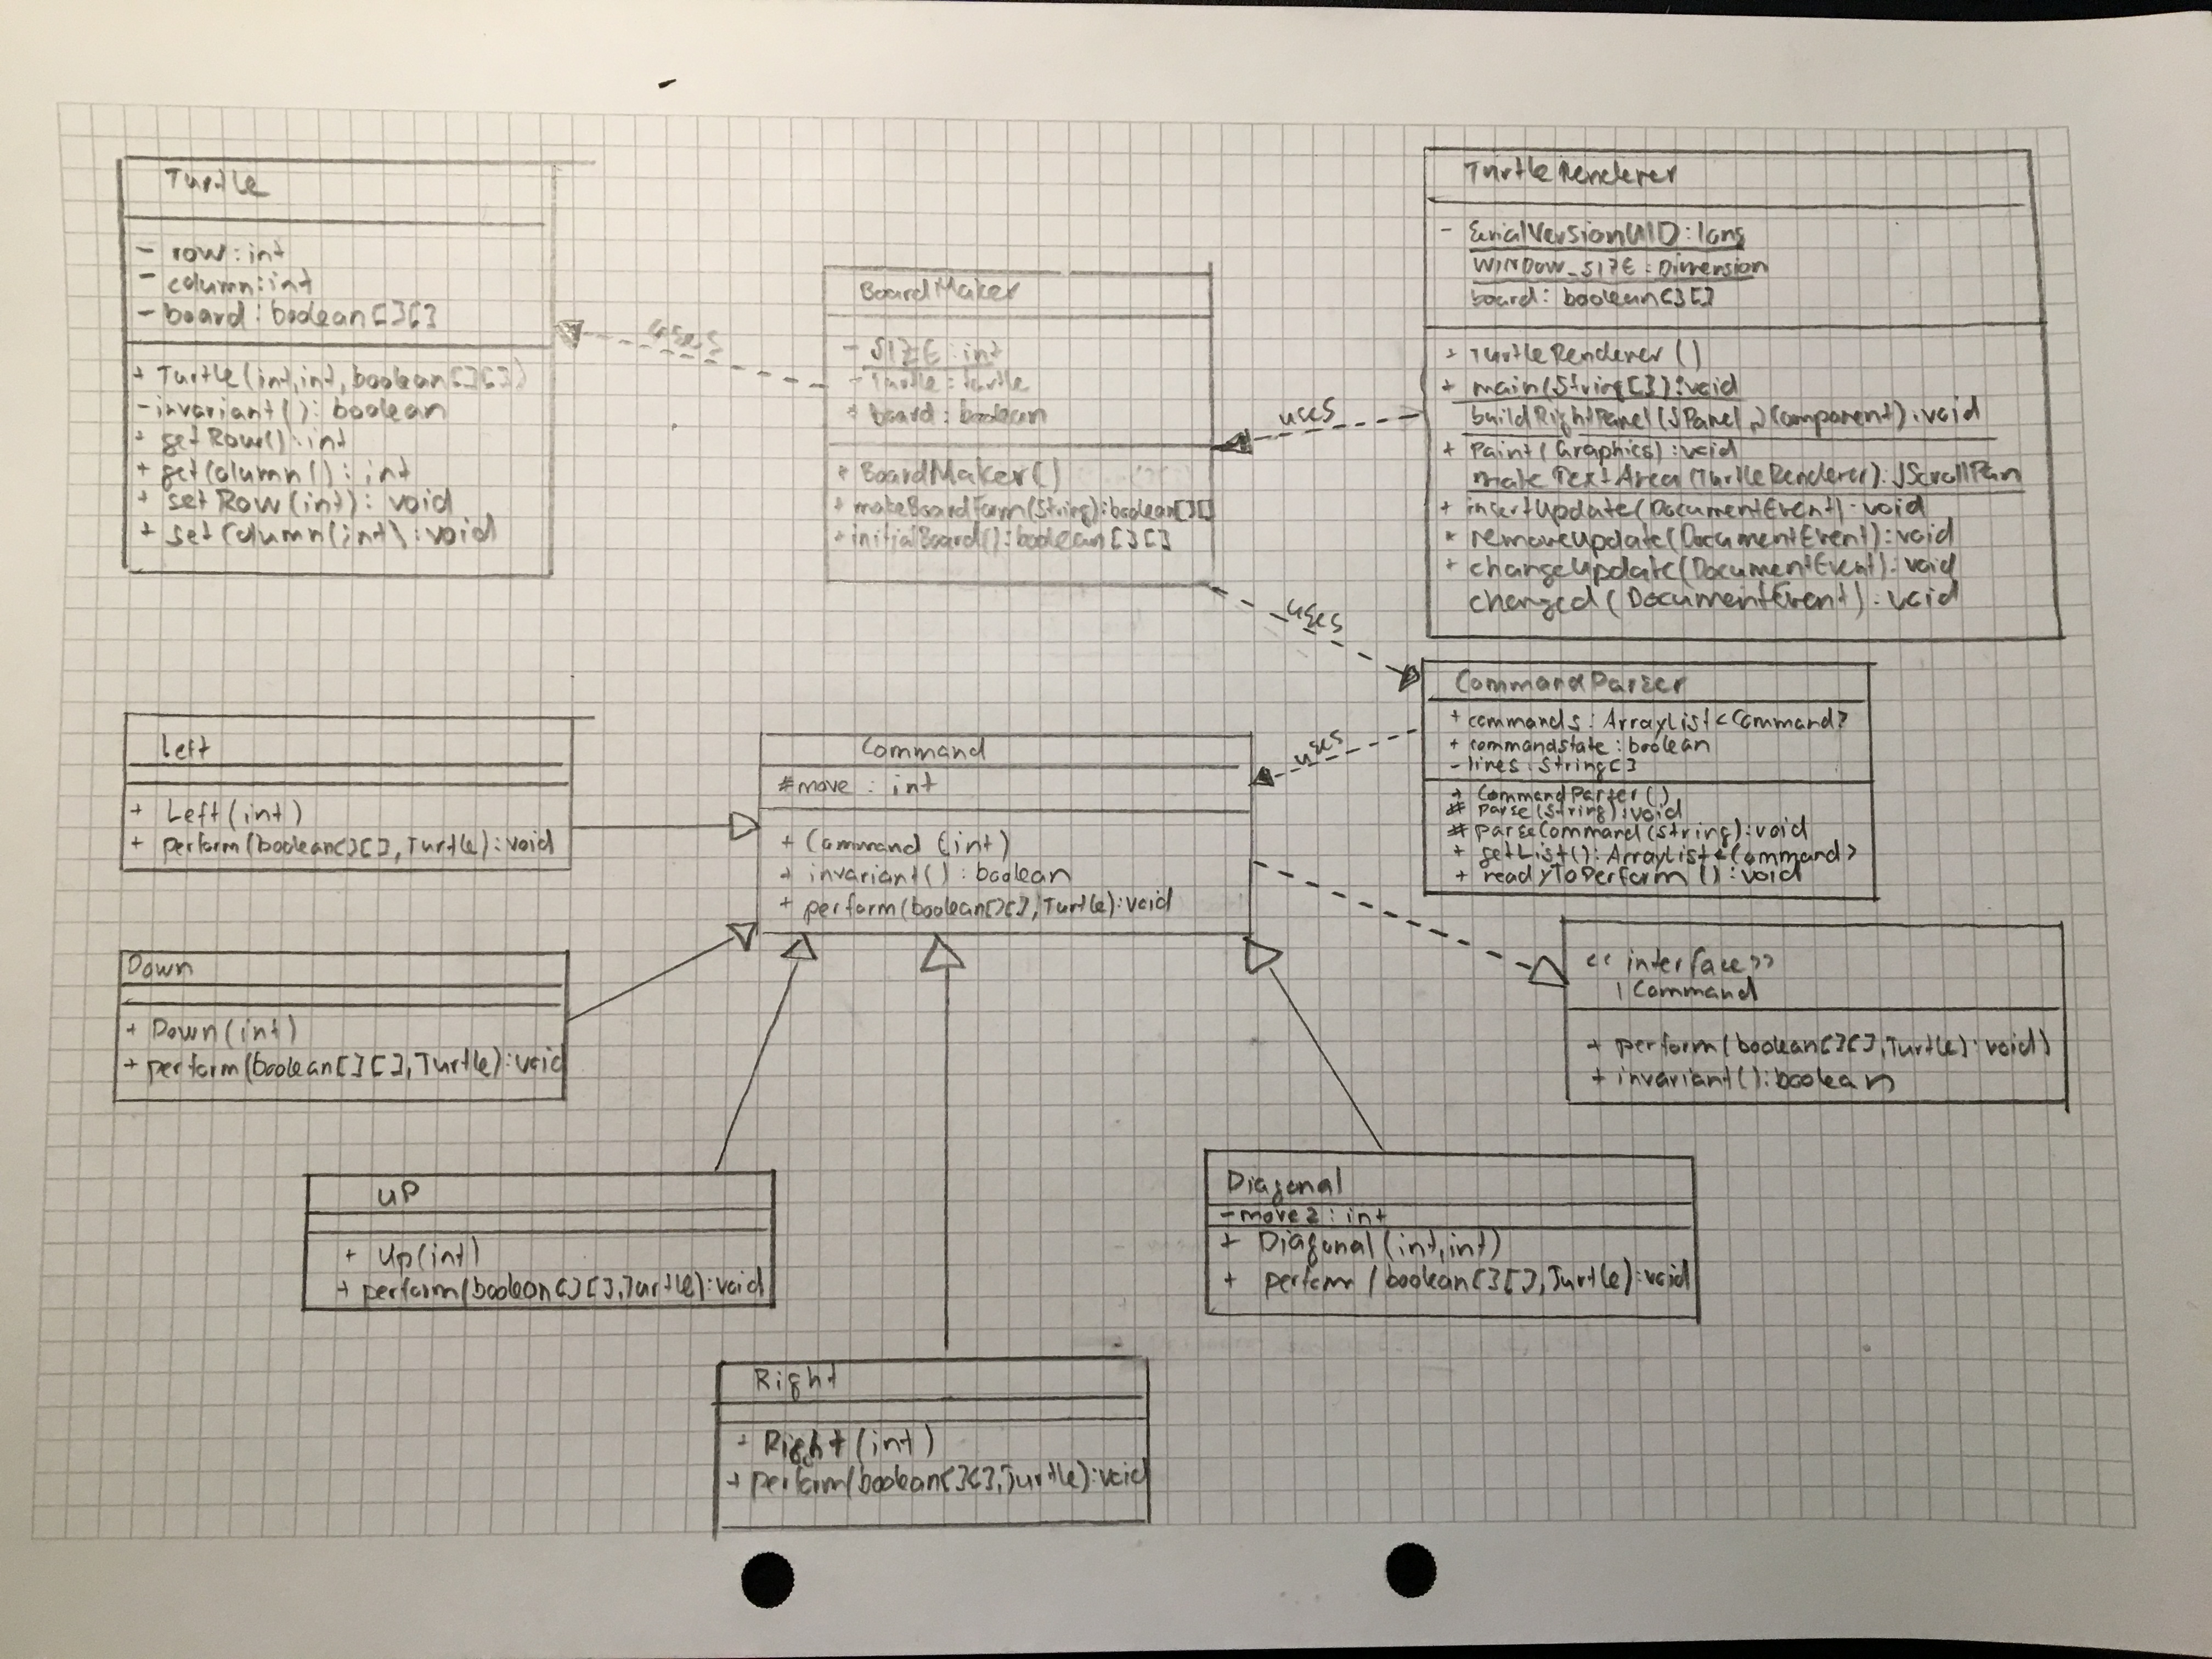 Turtle
- row : int
- column : int
- board : boolean[][]
+ Turtle(int, int, boolean[][])
- invariant() : boolean
+ getRow() : int
+ getColumn() : int
+ setRow(int) : void
+ setColumn(int) : void
uses
BoardMaker
- SIZE : int
- Turtle : Turtle
+ board : boolean
+ BoardMaker()
+ makeBoardForm(String) : boolean[][]
+ initialBoard() : boolean[][]
uses
uses
TurtleRenderer
- SerialVersionUID : long
WINDOW_SIZE : Dimension
board : boolean[][]
+ TurtleRenderer()
+ main(String[]) : void
buildRightPanel(JPanel, JComponent) : void
+ Paint(Graphics) : void
make TextArea(TurtleRenderer) : JScrollPan
+ insertUpdate(DocumentEvent) : void
+ removeUpdate(DocumentEvent) : void
+ changeUpdate(DocumentEvent) : void
changed(DocumentEvent) : void
CommandParser
+ commands : ArrayList<Command>
+ commandstate : boolean
- lines : String[]
+ CommandParser()
# parse(String) : void
# parseCommand(String) : void
+ getList() : ArrayList<Command>
+ readyToPerform() : void
uses
Left
+ Left(int)
+ perform(boolean[][], Turtle) : void
Command
#move : int
+ Command (int)
+ invariant() : boolean
+ perform(boolean[][], Turtle) : void
Down
+ Down(int)
+ perform(boolean[][], Turtle) : void
<< interface >>
ICommand
+ perform(boolean[][], Turtle) : void)
+ invariant() : boolean
UP
+ Up(int)
+ perform(boolean[][], Turtle) : void
Diagonal
- move2 : int
+ Diagonal(int, int)
+ perform(boolean[][], Turtle) : void
Right
+ Right(int)
+ perform(boolean[][], Turtle) : void